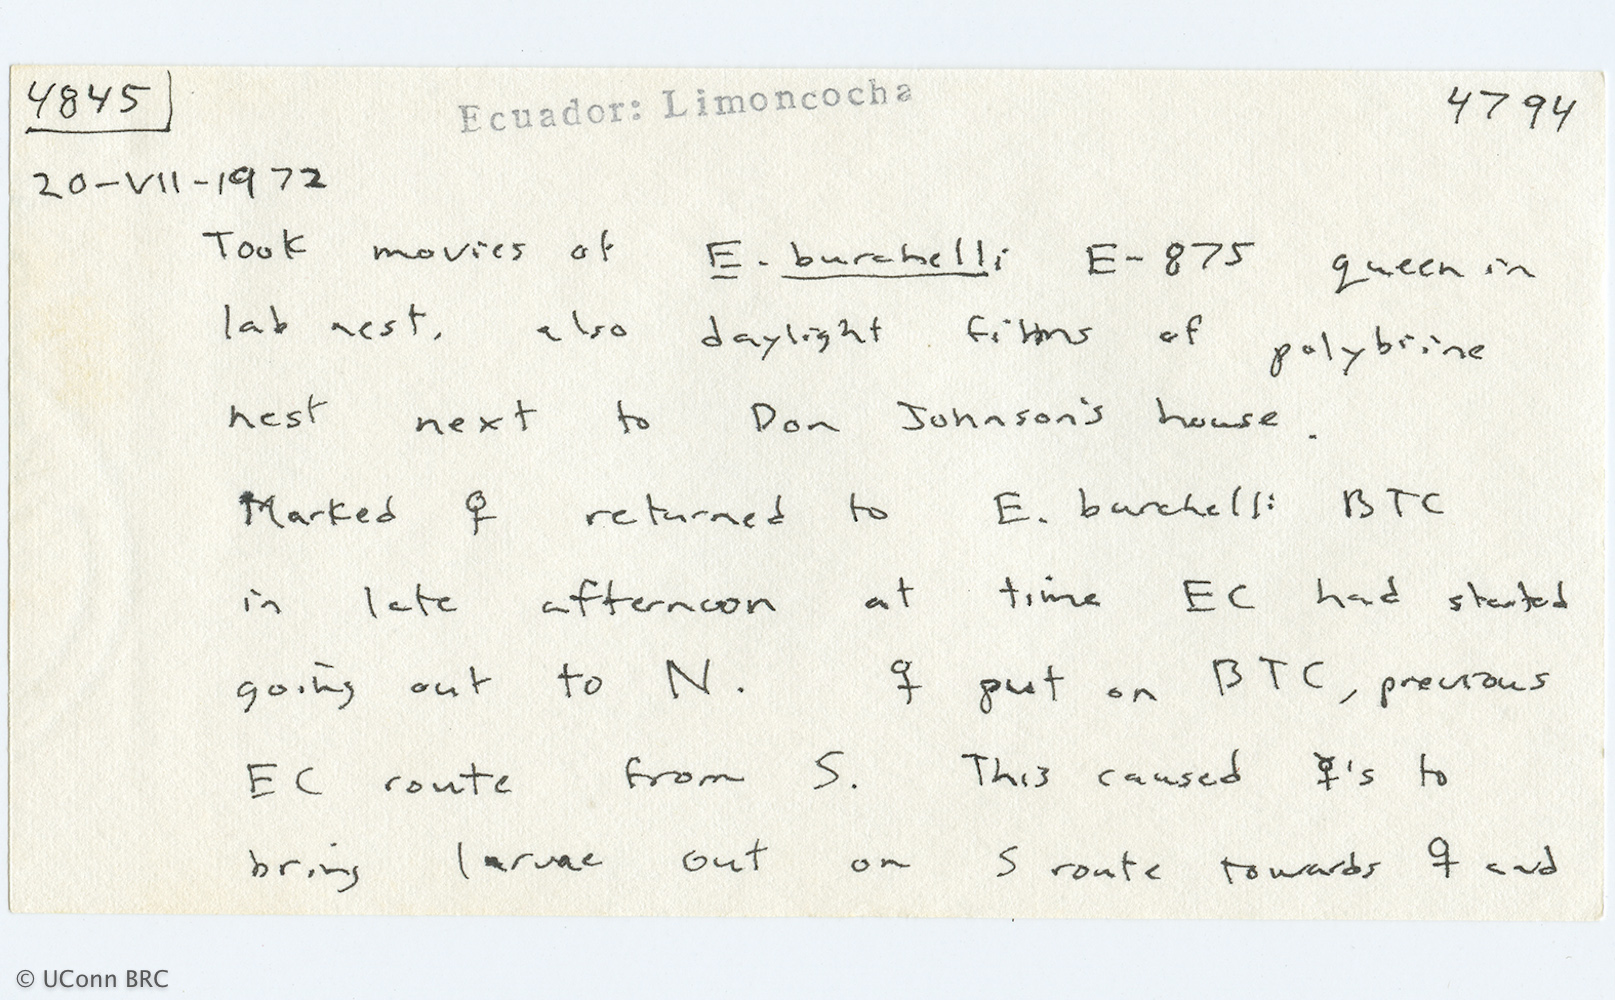 4845 Ecuador: Limoncocha 4794
20-VII-1972
Took movies of E. burchelli E-875 queen in
lab nest, also daylight films of polybiine
nest next to Don Johnson's house.
Marked ♀ returned to E. burchelli BTC
in late afternoon at time EC had started
going out to N. ♀ put on BTC, previous
EC route from S. This caused ☿'s to
bring larvae out on S route towards ♀ and
© UConn BRC